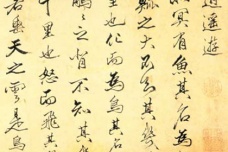 逍遙遊
冥有魚其名為
鯤之大不知其幾
里也化而為鳥其名
鵬之背不知其
千里也怒而飛其
若垂天之雲是鳥